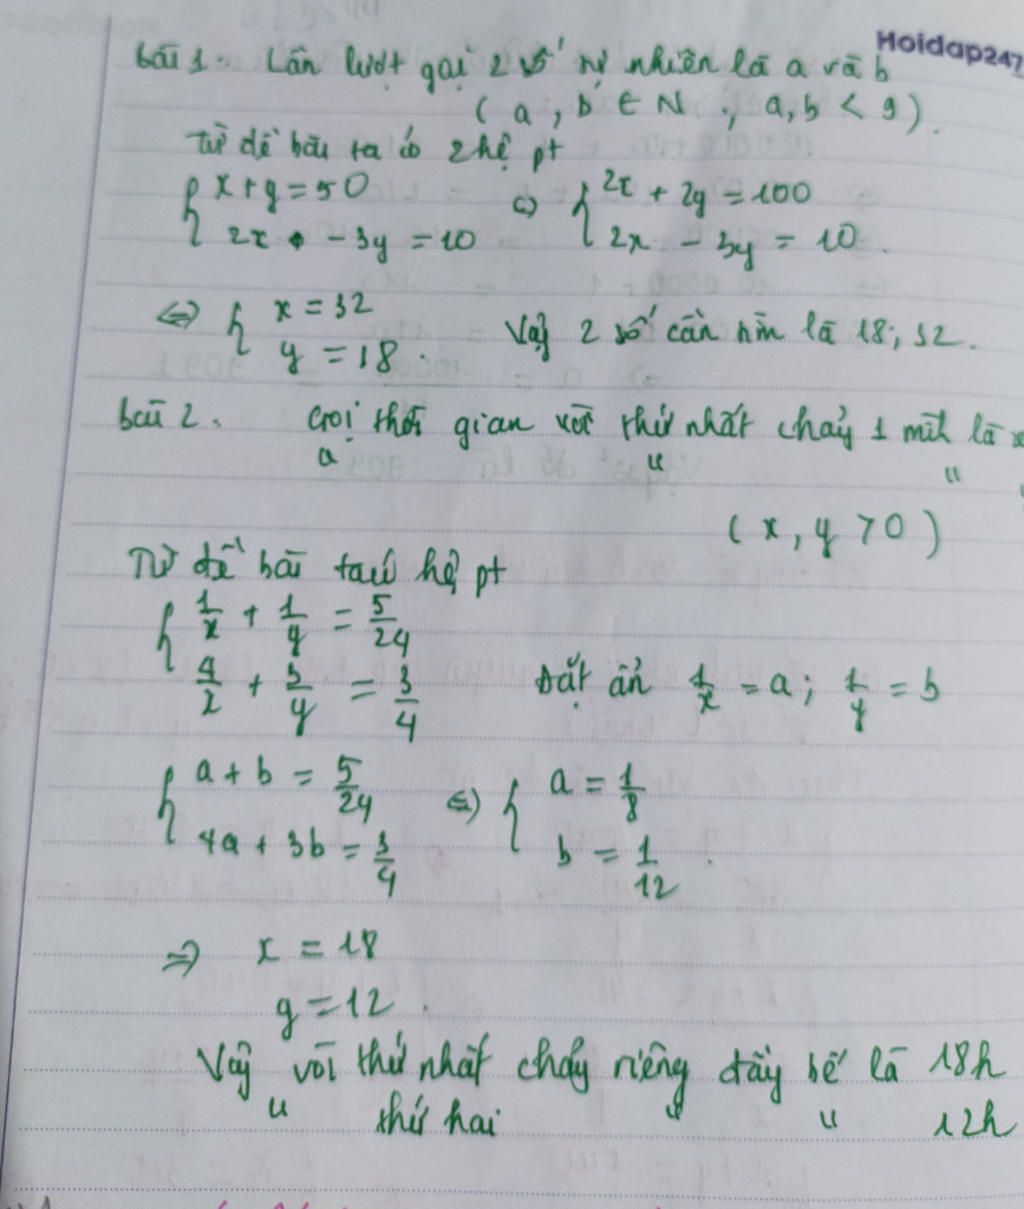 Hoidap247
bài 1. Lần lượt gọi 2 số tự nhiên là a và b
( a, b ∈ N ; a, b < 9 ).
Từ đề bài ta có 2 hệ pt
{ x + y = 50 <=> { 2x + 2y = 100
{ 2x - 3y = 10 { 2x - 3y = 10.
<=> { x = 32
{ y = 18. Vậy 2 số cần tìm là 18; 32.
bài 2. Gọi thời gian vòi thứ nhất chảy 1 mình là x
" " "
( x, y > 0 )
Từ đề bài ta có hệ pt
{ 1/x + 1/y = 5/24
{ 4/2 + 3/y = 3/4 Đặt ẩn 1/x = a; 1/y = b
{ a + b = 5/24 <=> { a = 1/8
{ 4a + 3b = 3/4 { b = 1/12.
=> x = 18
y = 12.
Vậy vòi thứ nhất chảy riêng đầy bể là 18h
" thứ hai " " 12h